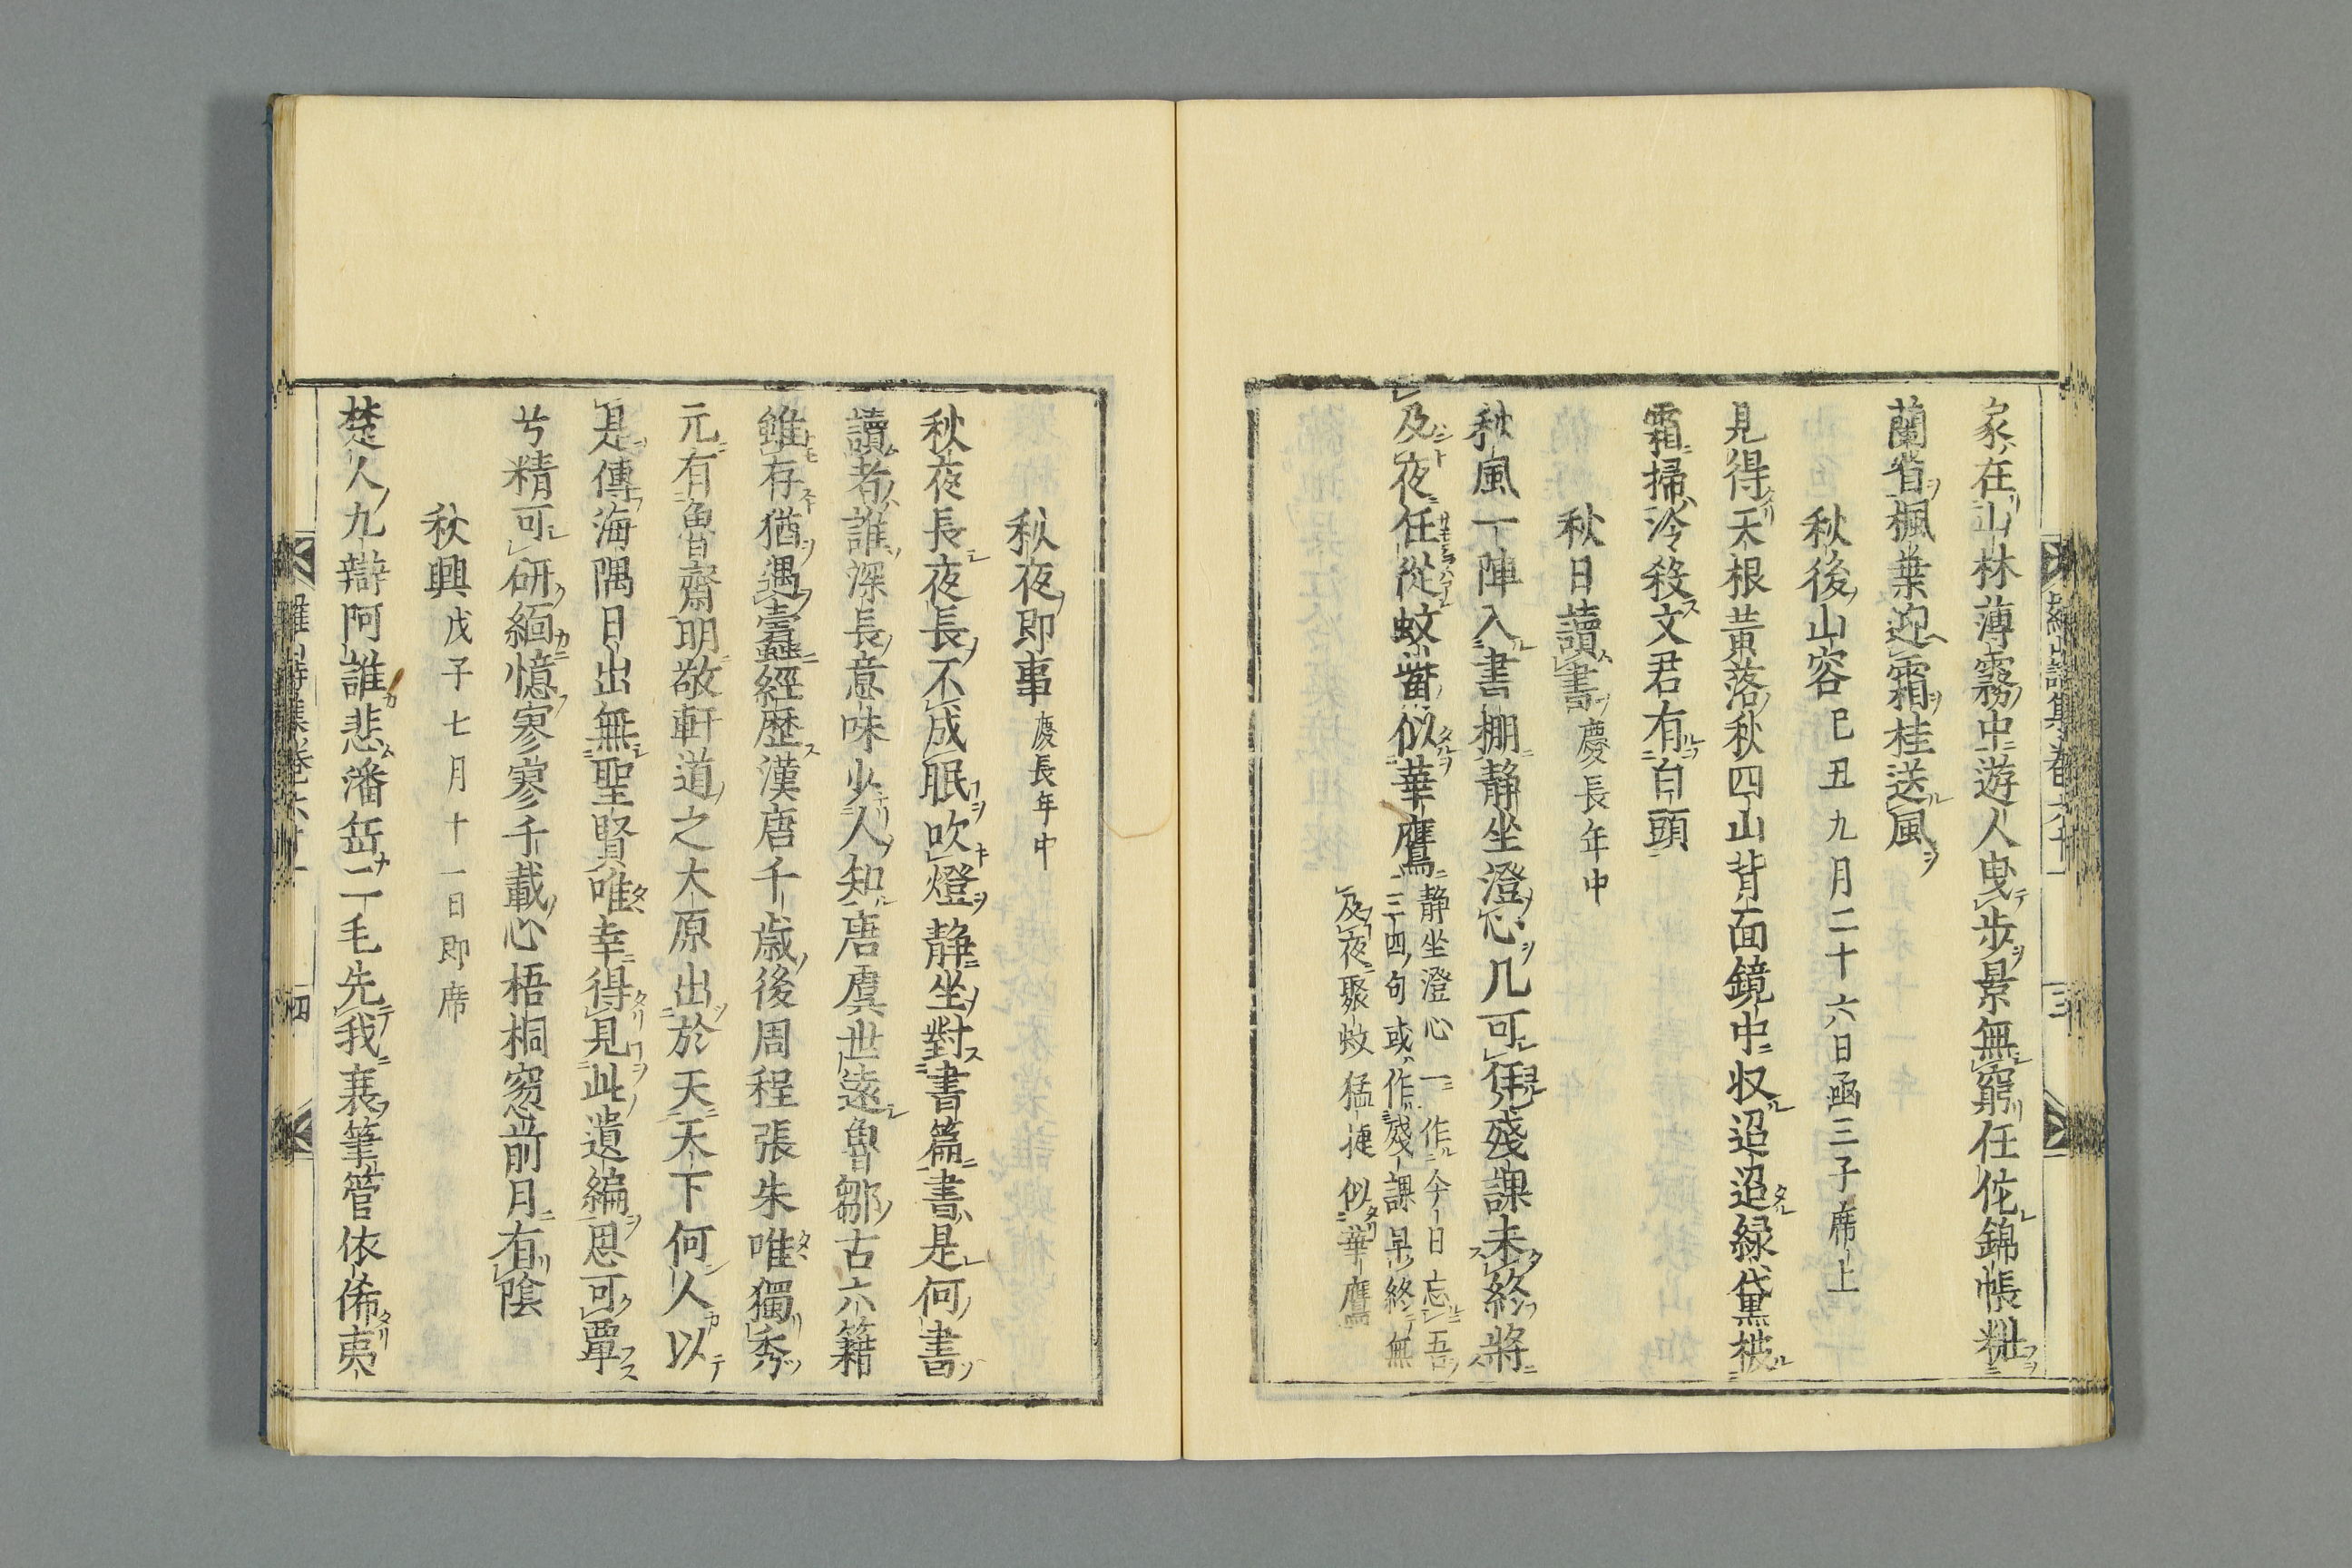 家在山林薄霧中遊人曳步景無窮任佗錦帳糚
蘭省楓葉迎霜桂送風
秋後山容己丑九月二十六日函三子席上
見得天根黃落秋四山背面鏡中収迢迢緑黛被
霜掃冷殺文君有白頭
秋日讀書慶長年中
秋風一陣入書棚靜坐澄心几可凭殘課未終將
及夜任從蚊觜似華鷹
靜坐澄心一作今日忘吾
三四句或作殘課早終無
及夜聚蚊猛捷似華鷹
秋夜即事慶長年中
秋夜長夜長不成眠吹燈靜坐對書篇書是何書
讀者誰深長意味少人知唐虞世遠魯鄒古六籍
雖存猶遇蠹經歷漢唐千歲後周程張朱唯獨秀
元有魯齋明敬軒道之大原出於天天下何人以
是傳海隅日出無聖賢唯幸得見此遺編思可覃
兮精可研緬憶寥寥千載心梧桐窓前月有陰
秋興戊子七月十一日即席
楚人九辯阿誰悲潘岳二毛先我衰筆管依俙夷